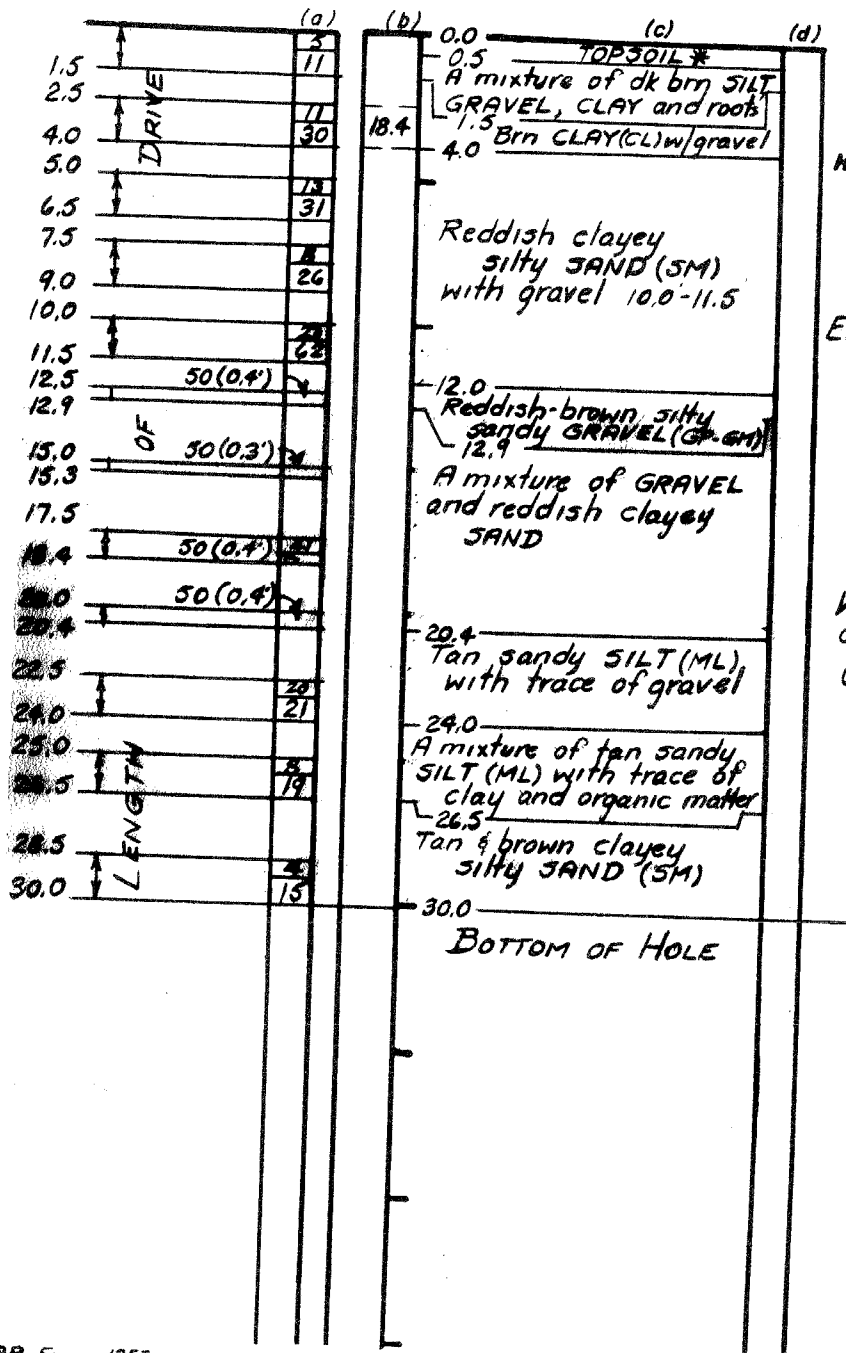 (a) (b) (c) (d)
5
11
1.5
2.5
11
30
4.0
5.0
13
31
6.5
7.5
26
9.0
10.0
62
11.5
12.5 50(0.4')
12.9
15.0 50(0.3')
15.3
17.5
18.4 50(0.4')
20.0 50(0.4')
20.4
22.5
21
24.0
25.0
8
19
26.5
28.5
15
30.0
LENGTH OF DRIVE
18.4
0.0
0.5 TOPSOIL *
A mixture of dk brn SILT,
GRAVEL, CLAY and roots
1.5
Brn CLAY(CL) w/gravel
4.0
Reddish clayey
silty SAND (SM)
with gravel 10.0'-11.5
12.0
Reddish-brown silty
sandy GRAVEL (GP-GM)
12.9
A mixture of GRAVEL
and reddish clayey
SAND
20.4
Tan sandy SILT (ML)
with trace of gravel
24.0
A mixture of tan sandy
SILT (ML) with trace of
clay and organic matter
26.5
Tan & brown clayey
silty SAND (SM)
30.0
BOTTOM OF HOLE